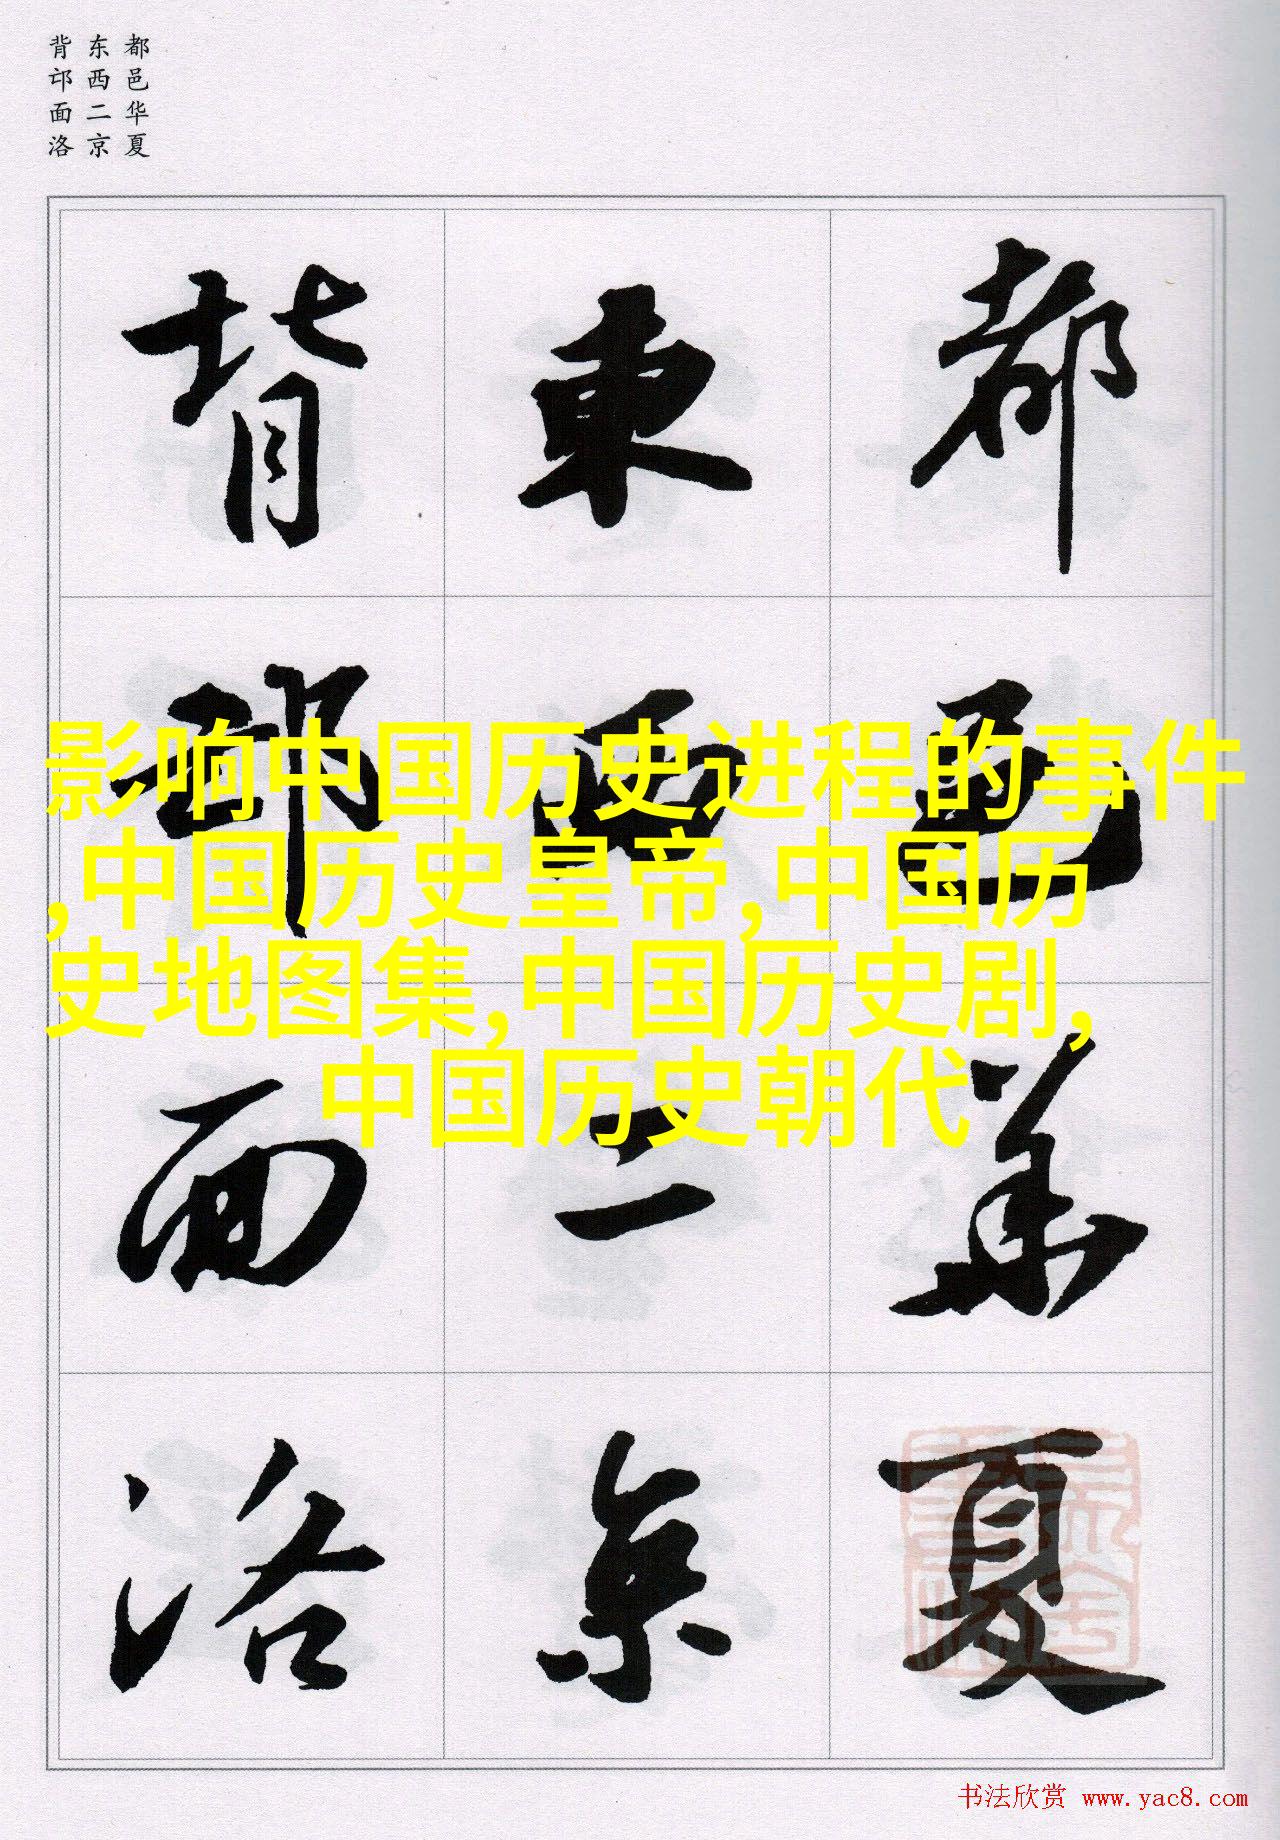 都邑华夏
东西二京
背邙面洛
都邑華夏
東西二京
背邙面洛
影响中国历史进程的事件
,中国历史皇帝,中国历
史地图集,中国历史剧,
中国历史朝代
书法欣赏 www.yac8.com